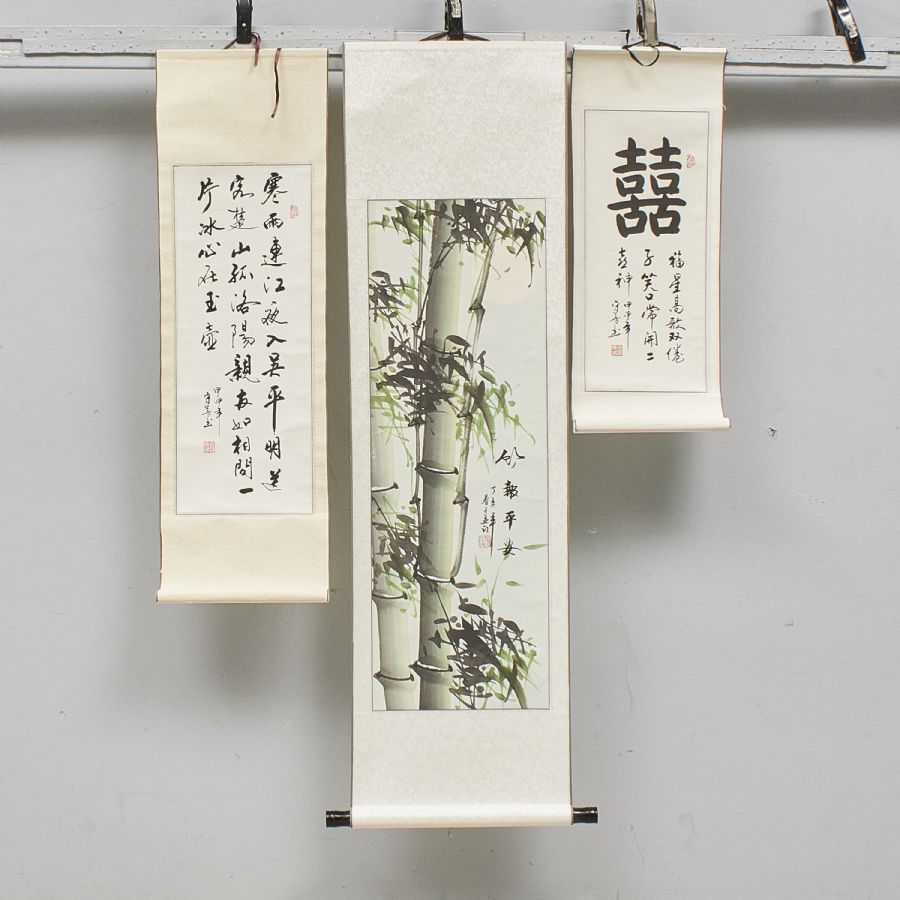 寒雨連江夜入吳平明送
客楚山孤洛陽親友如相問一
片冰心在玉壺
甲申年
竹報平安
丁亥年
囍
福星高歌双
子笑口常開二
喜神
甲申年